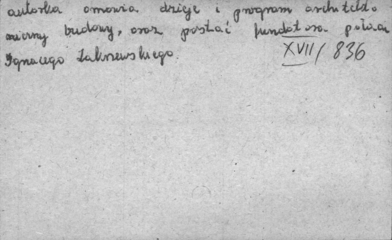 autorka omawia dzieje i program architekto
niczny budowy, oraz postać fundatora
Ignacego Zakrzewskiego.
XVII/836